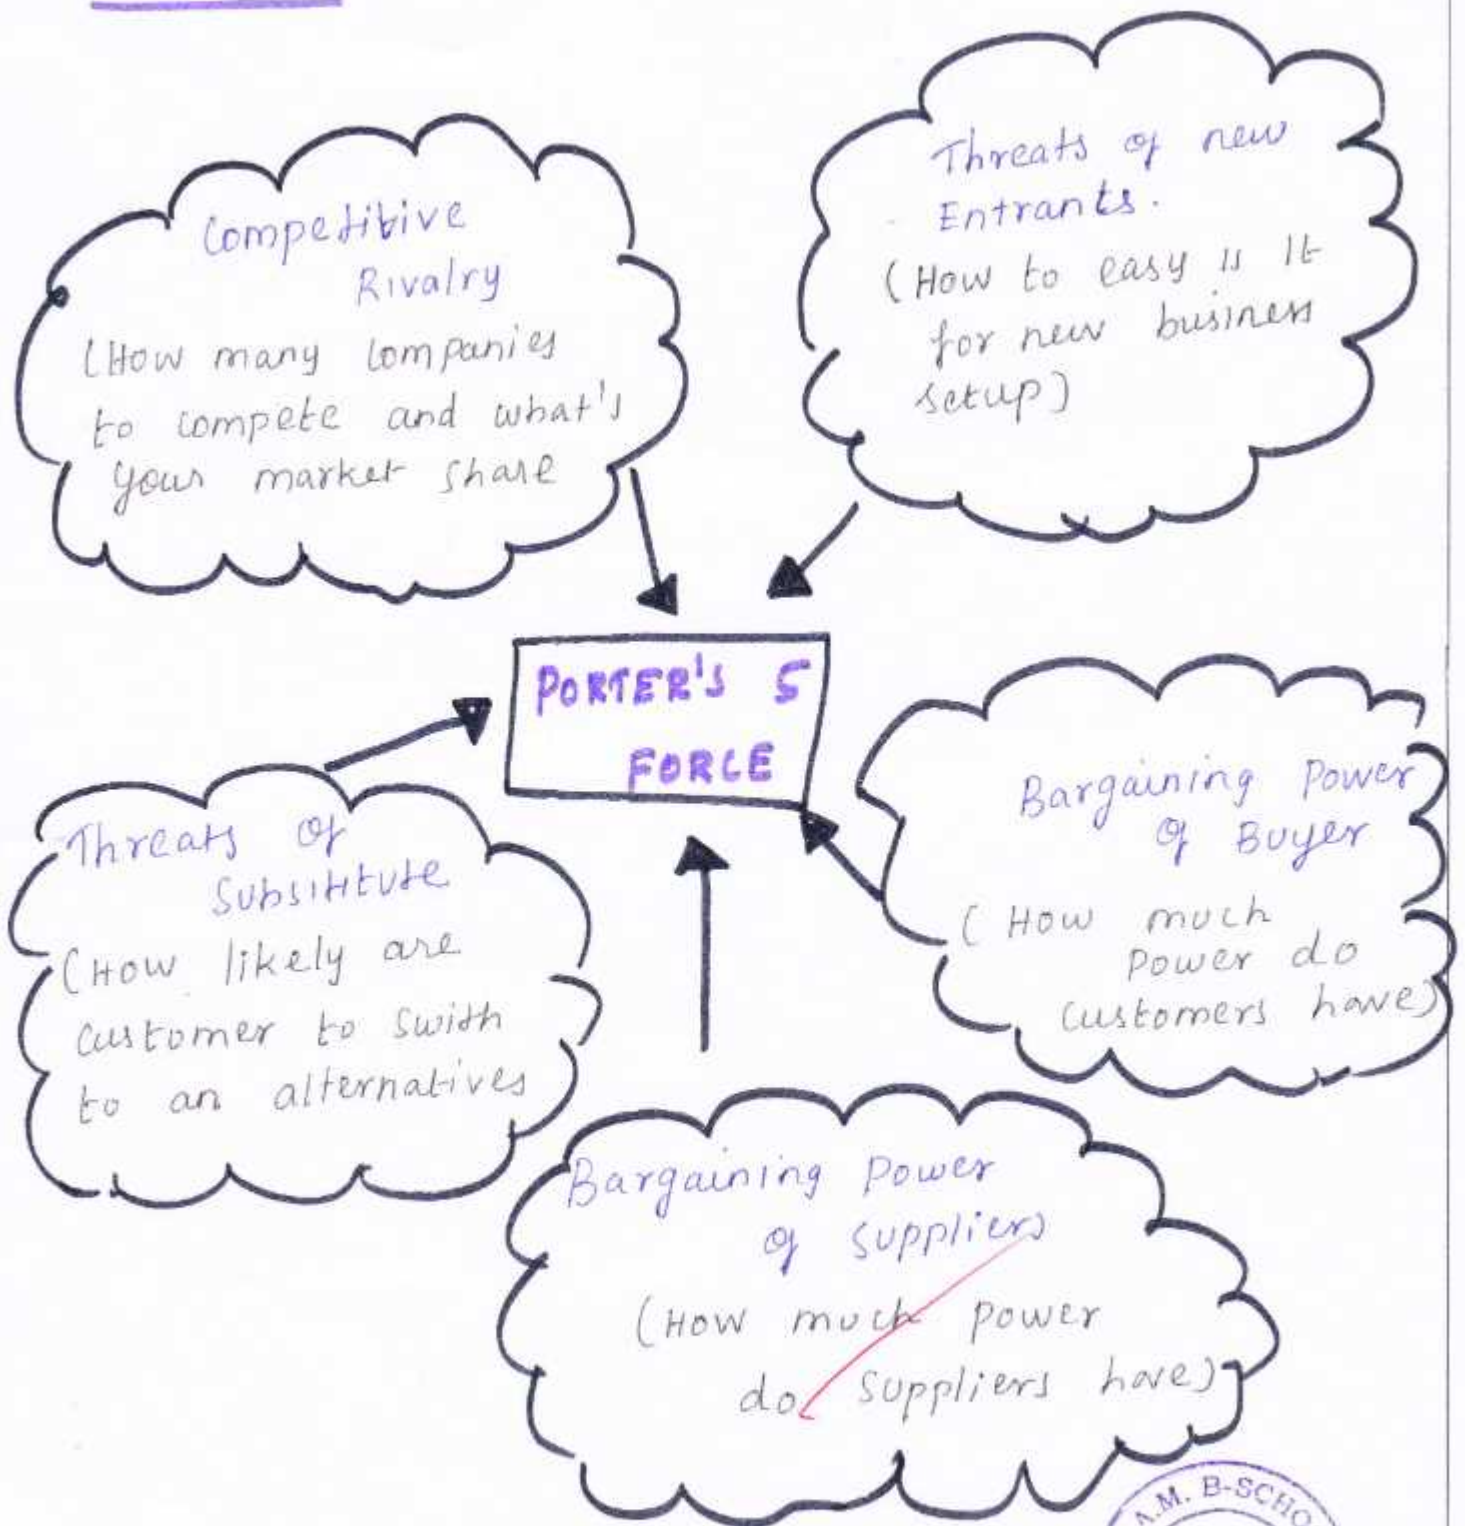 Competitive
Rivalry
(How many companies
to compete and what's
your market share
Threats of new
Entrants.
(How to easy is it
for new business
setup)
PORTER'S 5
FORCE
Threats of
Substitute
(How likely are
customer to swith
to an alternatives
Bargaining Power
of Buyer
(How much
Power do
customers have)
Bargaining Power
of suppliers
(How much power
do suppliers have)
A.M. B-SCHO